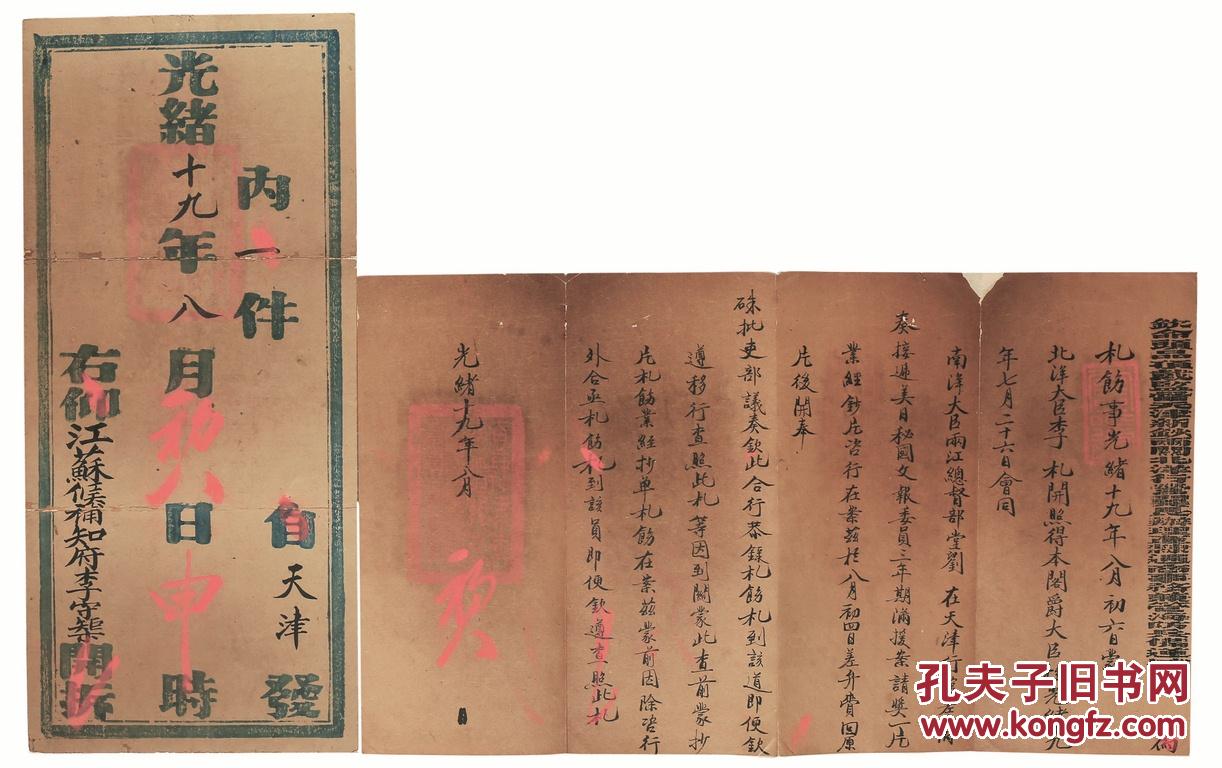 內一件
自天津發
光緒十九年八月初八日申時
右仰江蘇候補知府李守 開拆
札飭事光緒十九年八月初六日蒙
北洋大臣李 札開照得本閣爵大臣 光緒十九
年七月二十六日會同
南洋大臣兩江總督部堂劉 在天津行
奏接遞美日秘國文報委員三年期滿援案請獎一片
業經鈔片咨行在案茲於八月初四日差弁賫回原
片後開奉
硃批吏部議奏欽此合行恭錄札飭札到該道即便欽
遵移行查照此札等因到關蒙此查前蒙抄
片札飭業經抄單札飭在案茲蒙前因除咨行
外合亟札飭札到該員即便欽遵查照此札
光緒十九年八月
孔夫子旧书网
www.kongfz.com